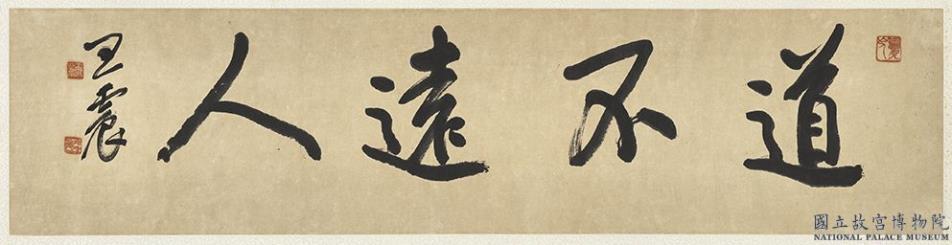 道不遠人
王震
國立故宮博物院
NATIONAL PALACE MUSEUM